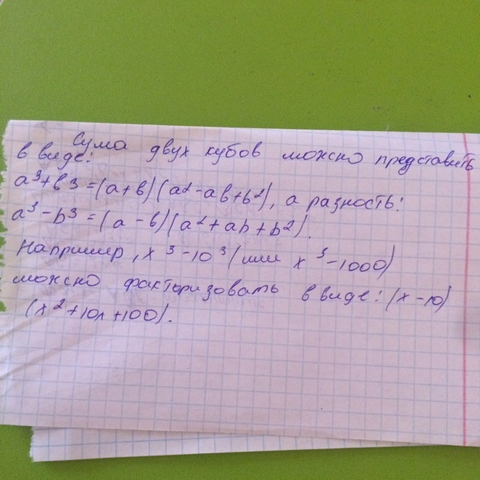 Сума двух кубов можно представить
в виде:
a³+b³=(a+b)(a²-ab+b²), а разность:
a³-b³=(a-b)(a²+ab+b²).
Например, x³-10³(или x³-1000)
можно факторизовать в виде: (x-10)
(x²+10x+100).